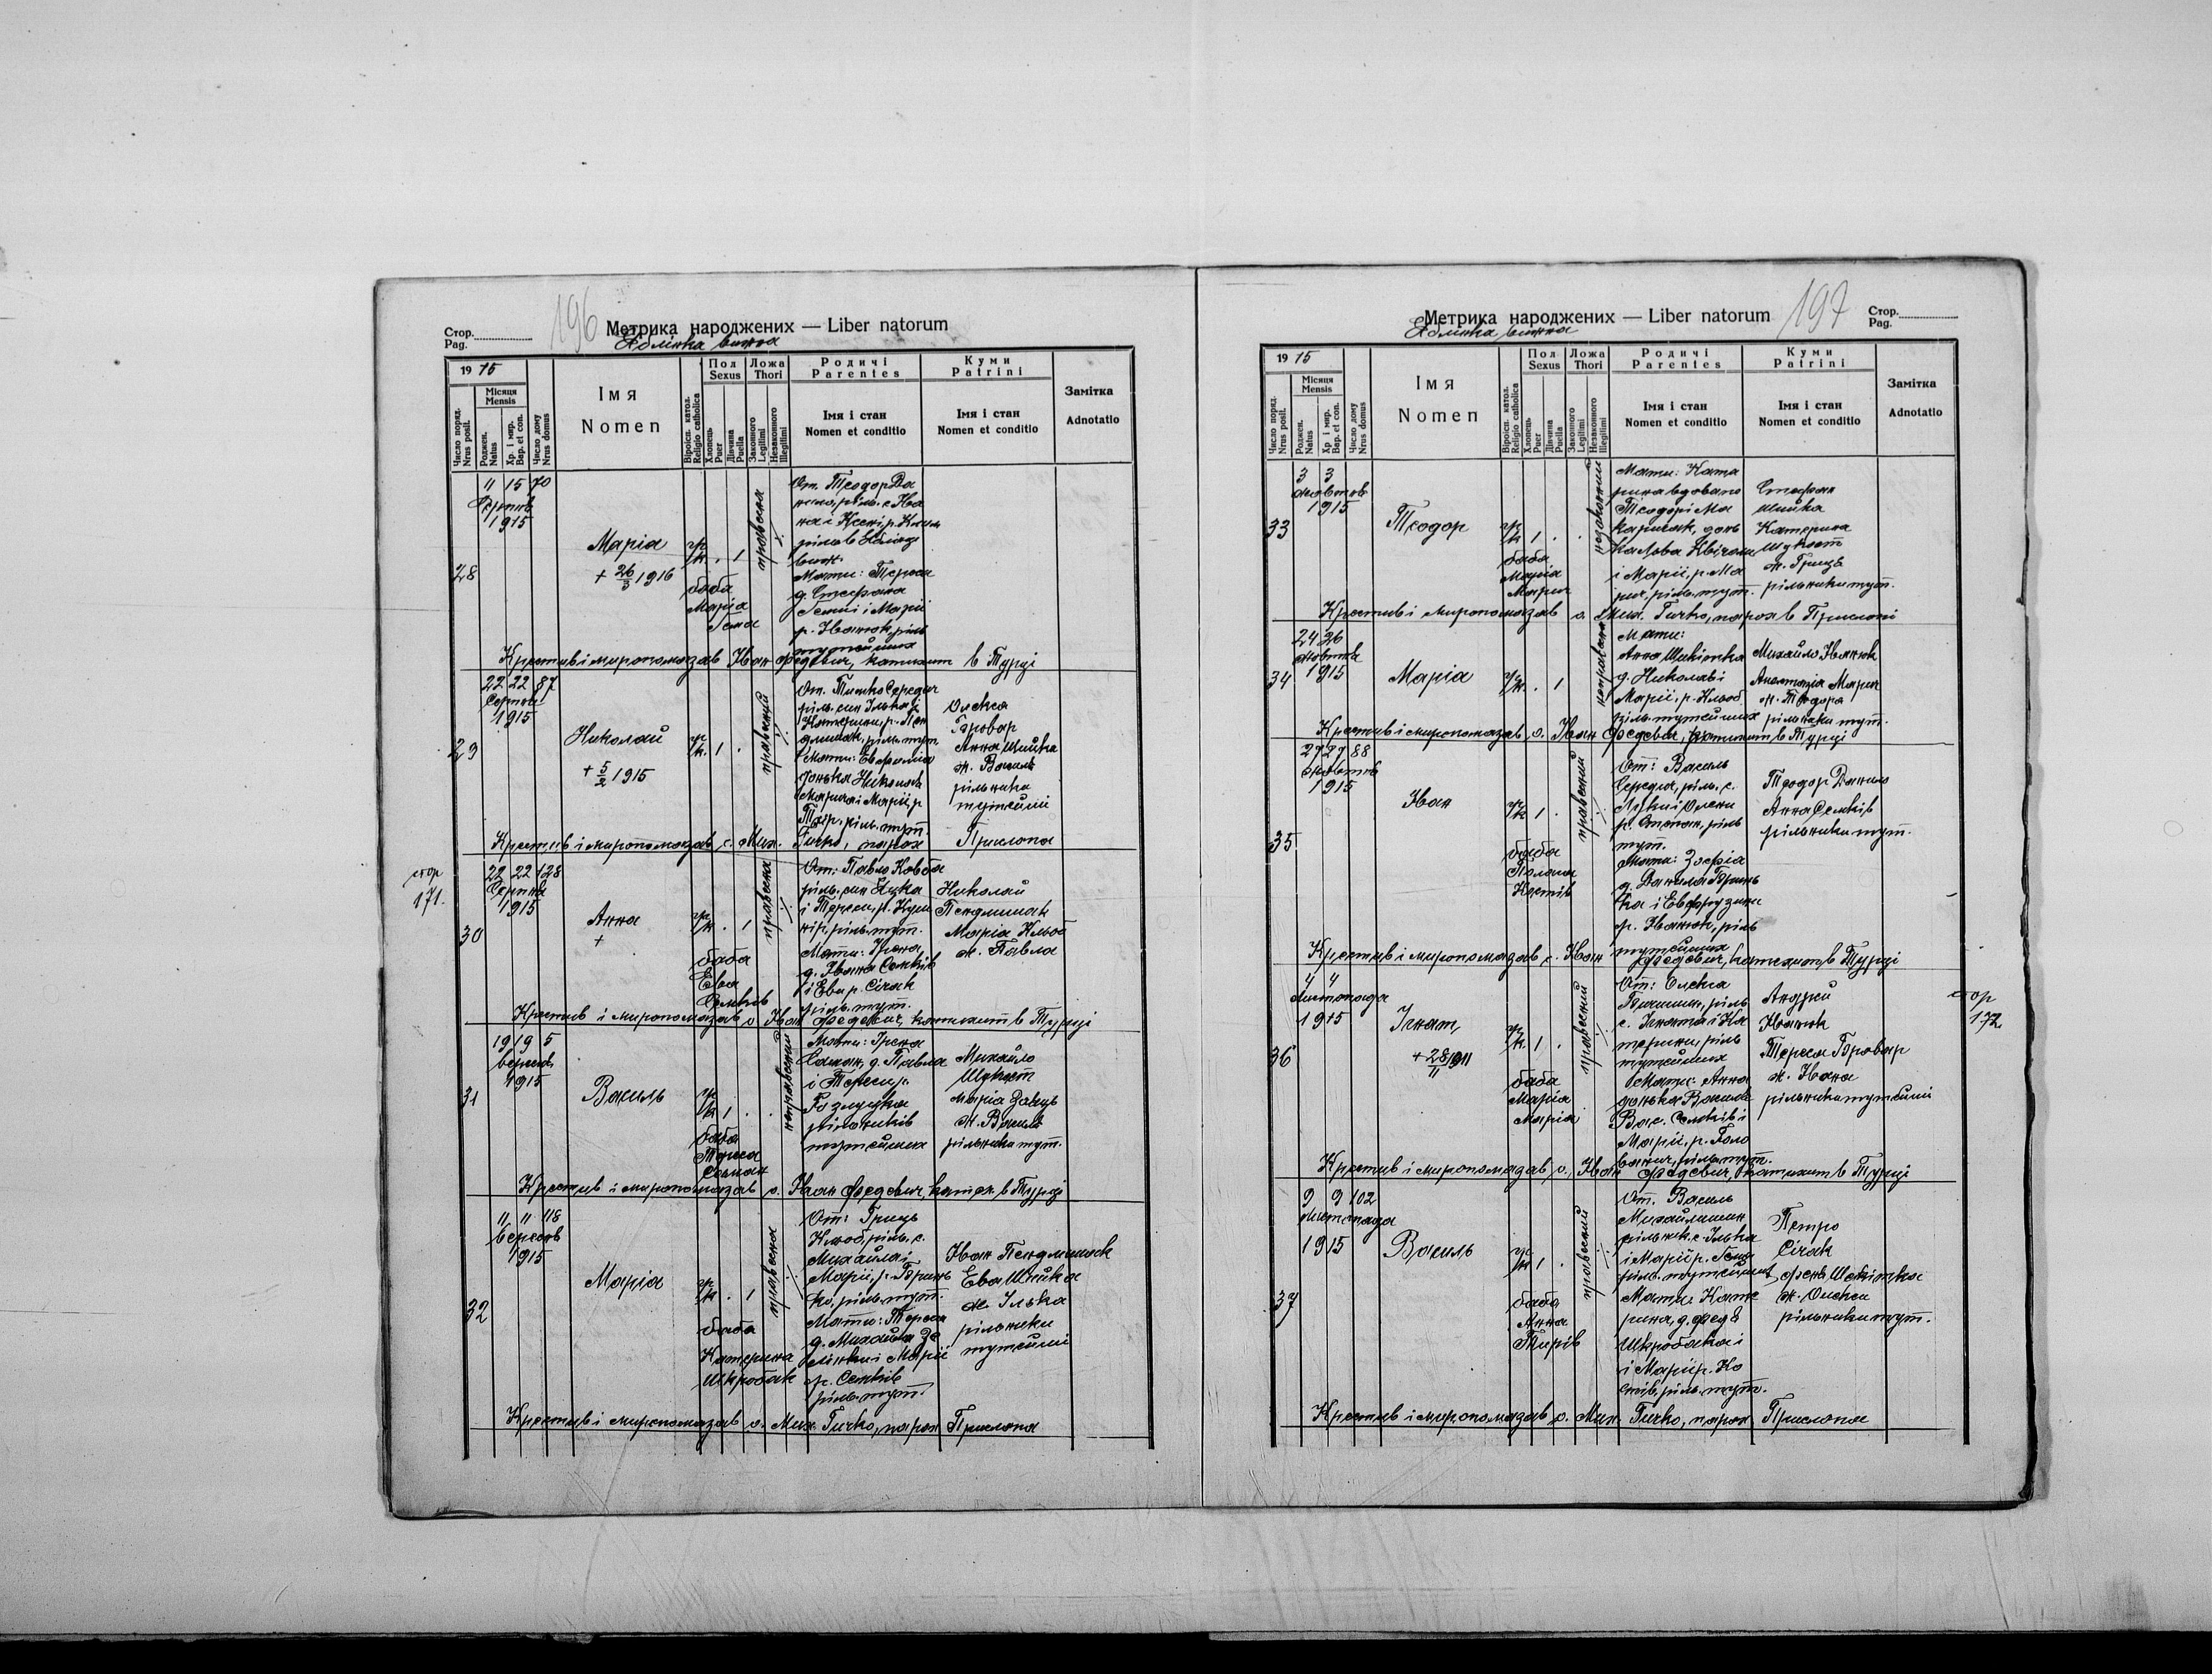 196
Стор.
Pag.
Метрика народжених — Liber natorum
Яблінка вижна
19 15
Число поряд.
Nrus posit.
Місяця
Mensis
Роджен.
Natus
Хр. і мир.
Bap. et con.
Число дому
Nrus domus
Імя
Nomen
Віроісп. катол.
Religio catholica
Пол
Sexus
Хлопець
Puer
Дівчина
Puella
Ложа
Thori
Законного
Legitimi
Незаконного
Illegitimi
Родичі
Parentes
Імя і стан
Nomen et conditio
Куми
Patrini
Імя і стан
Nomen et conditio
Замітка
Adnotatio
28
11 15 70
Серпня
1915
Марія
+ 26/3 1916
гр.
к. . 1
баба
Марія
правесна
От. Теодор
рілів Яблінці
вижн.
Мати: Тереса
д. Стефана
і Марії
р. Іванюк, ріль
тутейших
Крестив і миропомазав Іван Федевич, катихит в Турці
29
22 22 87
Серпня
1915
Николай
+ 5/2 1915
гр.
к. 1 .
правесний
От. Тимко Середич
ріль. син Ілька і
Катерини, р. Пен
длишак, ріль. тут.
Мати: Евфрозина
донька Николая
Марича і Марії р.
ріль. тут.
Олекса
Бровар
Анна Шийка
ж. Василя
рільники
тутейші
Крестив і миропомазав о. Мих. Гичко, парох Прислопа
стор
171.
30
22 22 128
Серпня
1915
Анна
+
гр.
к. . 1
баба
Ева
Семків
правесна
От: Павло Ковба
ріль. син Яцка
і Тереси, р. Куш
нір, ріль. тут.
Мати: Ірена,
д. Івана Семків
і Еви р. Січак
ріль. тут.
Николай
Пендлишак
Марія Кльоб
ж. Павла
Крестив і миропомазав о. Іван Федевич, катихит в Турці
31
19 19 5
вересня
1915
Василь
гр.
к. 1 . .
баба
Тереса
неправесний
Мати: Ірена
д. Павла
і Тереси р.
Розлуцка
рільників
тутейших
Михайло
Шукост
Марія Завуць
ж. Василя
рільники тут.
Крестив і миропомазав о. Іван Федевич, катех. в Турці
32
11 11 118
вересня
1915
Марія
гр.
к. . 1
баба
Катерина
Шкробак
правесна
От: Гриць
Кльоб, ріль. с.
Михайла і
Марії, р. Гринь
ко, ріль. тут.
Мати: Тереса
д. Михайла Зе
лінки і Марії
р. Семків
ріль. тут.
Іван Пендлишак
Ева Шийка
ж. Ілька
рільники
тутейші
Крестив і миропомазав о. Мих. Гичко, парох Прислопа
Метрика народжених — Liber natorum
197
Стор.
Pag.
Яблінка вижна
19 15
Число поряд.
Nrus posit.
Місяця
Mensis
Роджен.
Natus
Хр. і мир.
Bap. et con.
Число дому
Nrus domus
Імя
Nomen
Віроісп. катол.
Religio catholica
Пол
Sexus
Хлопець
Puer
Дівчина
Puella
Ложа
Thori
Законного
Legitimi
Незаконного
Illegitimi
Родичі
Parentes
Імя і стан
Nomen et conditio
Куми
Patrini
Імя і стан
Nomen et conditio
Замітка
Adnotatio
33
3 3
жовтня
1915
Теодор
гр.
к. 1 . .
баба
Марія
Марич
незаконний
Мати: Кате
рина вдова по
Теодорі Ма
каричак, донь
ка Івана
і Марії, р. Ма
рич, ріль. тут.
Стефан
Шийка
Катерина
Шукост
ж. Гриця
рільники тут.
Крестив і миропомазав о. Мих. Гичко, парох в Прислопі
34
24 26
жовтня
1915
Марія
гр.
к. . 1
неправесна
Мати:
Анна Шикітка
д. Николая і
Марії, р. Кльоб
ріль. тутейших
Михайло Іванюк
Анастазія Марич
ж. Теодора
рільники тут.
Крестив і миропомазав о. Іван Федевич, катихит в Турці
35
27 27 88
жовтня
1915
Іван
гр.
к. 1 .
баба
Полана
Костів
правесний
От: Василь
Середич, ріль. с.
Луки і Олени
р. Степан, ріль
тут.
Мати: Зофія
д. Данила Гринь
ка і Евфрузини
р. Іванюк, ріль
тутейших
Теодор Данило
Анна Семків
рільники тут.
Крестив і миропомазав о. Іван Федевич, катехит, в Турці
36
4 4
листопада
1915
Ігнат,
+ 28/11 1911
гр.
к. 1 .
баба
Марія
Марія
правесний
От: Олекса
ріль
с. Ігната і Ка
терини, ріль
тутейших
Мати: Анна
донька Василя
Вас. Семків і
Марії, р. Голо
ріль. тут.
Андрей
Іванюк
Тереса Бровар
ж. Івана
рільники тутейші
стор
172
Крестив і миропомазав о. Іван Федевич, катихит в Турці
37
9 9 102
листопада
1915
Василь
гр.
к. 1 .
баба
Анна
правесний
От. Василь
Михайлишин
рільник с. Ілька
і Марії р.
ріль. тутейших
Мати: Кате
рина, д. Федя
Шкробака і
і Марії р. Ко
стів, ріль. тут.
Петро
Січак
Фенна Шекітка
ж. Олекси
рільники тут.
Крестив і миропомазав о. Мих. Гичко, парох Прислопа